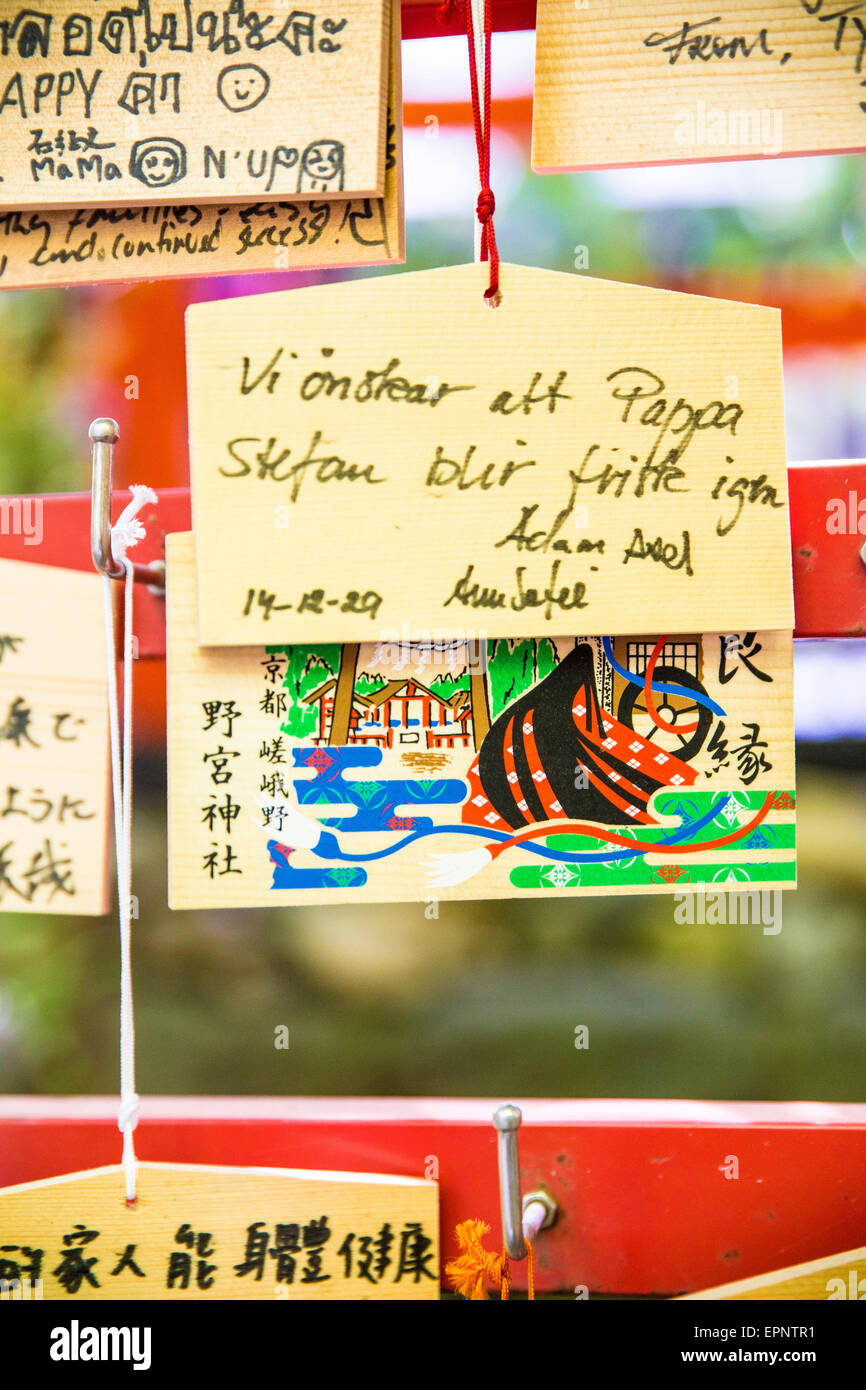 ลอดไปนะคะ
APPY
MaMa N'UP
and continued success!
From, TY
Vi önskar att Pappa
Stefan blir friske igen
Adam Axel
14-12-29
良縁
京都嵯峨野
野宮神社
で
ように
家人能身體健康
alamy
Image ID: EPNTR1
www.alamy.com